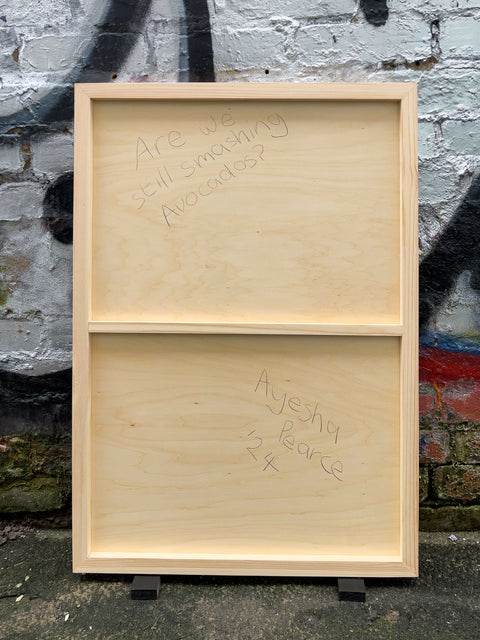 Are we
still smashing
Avocados?
Ayesha
Pearce
'24